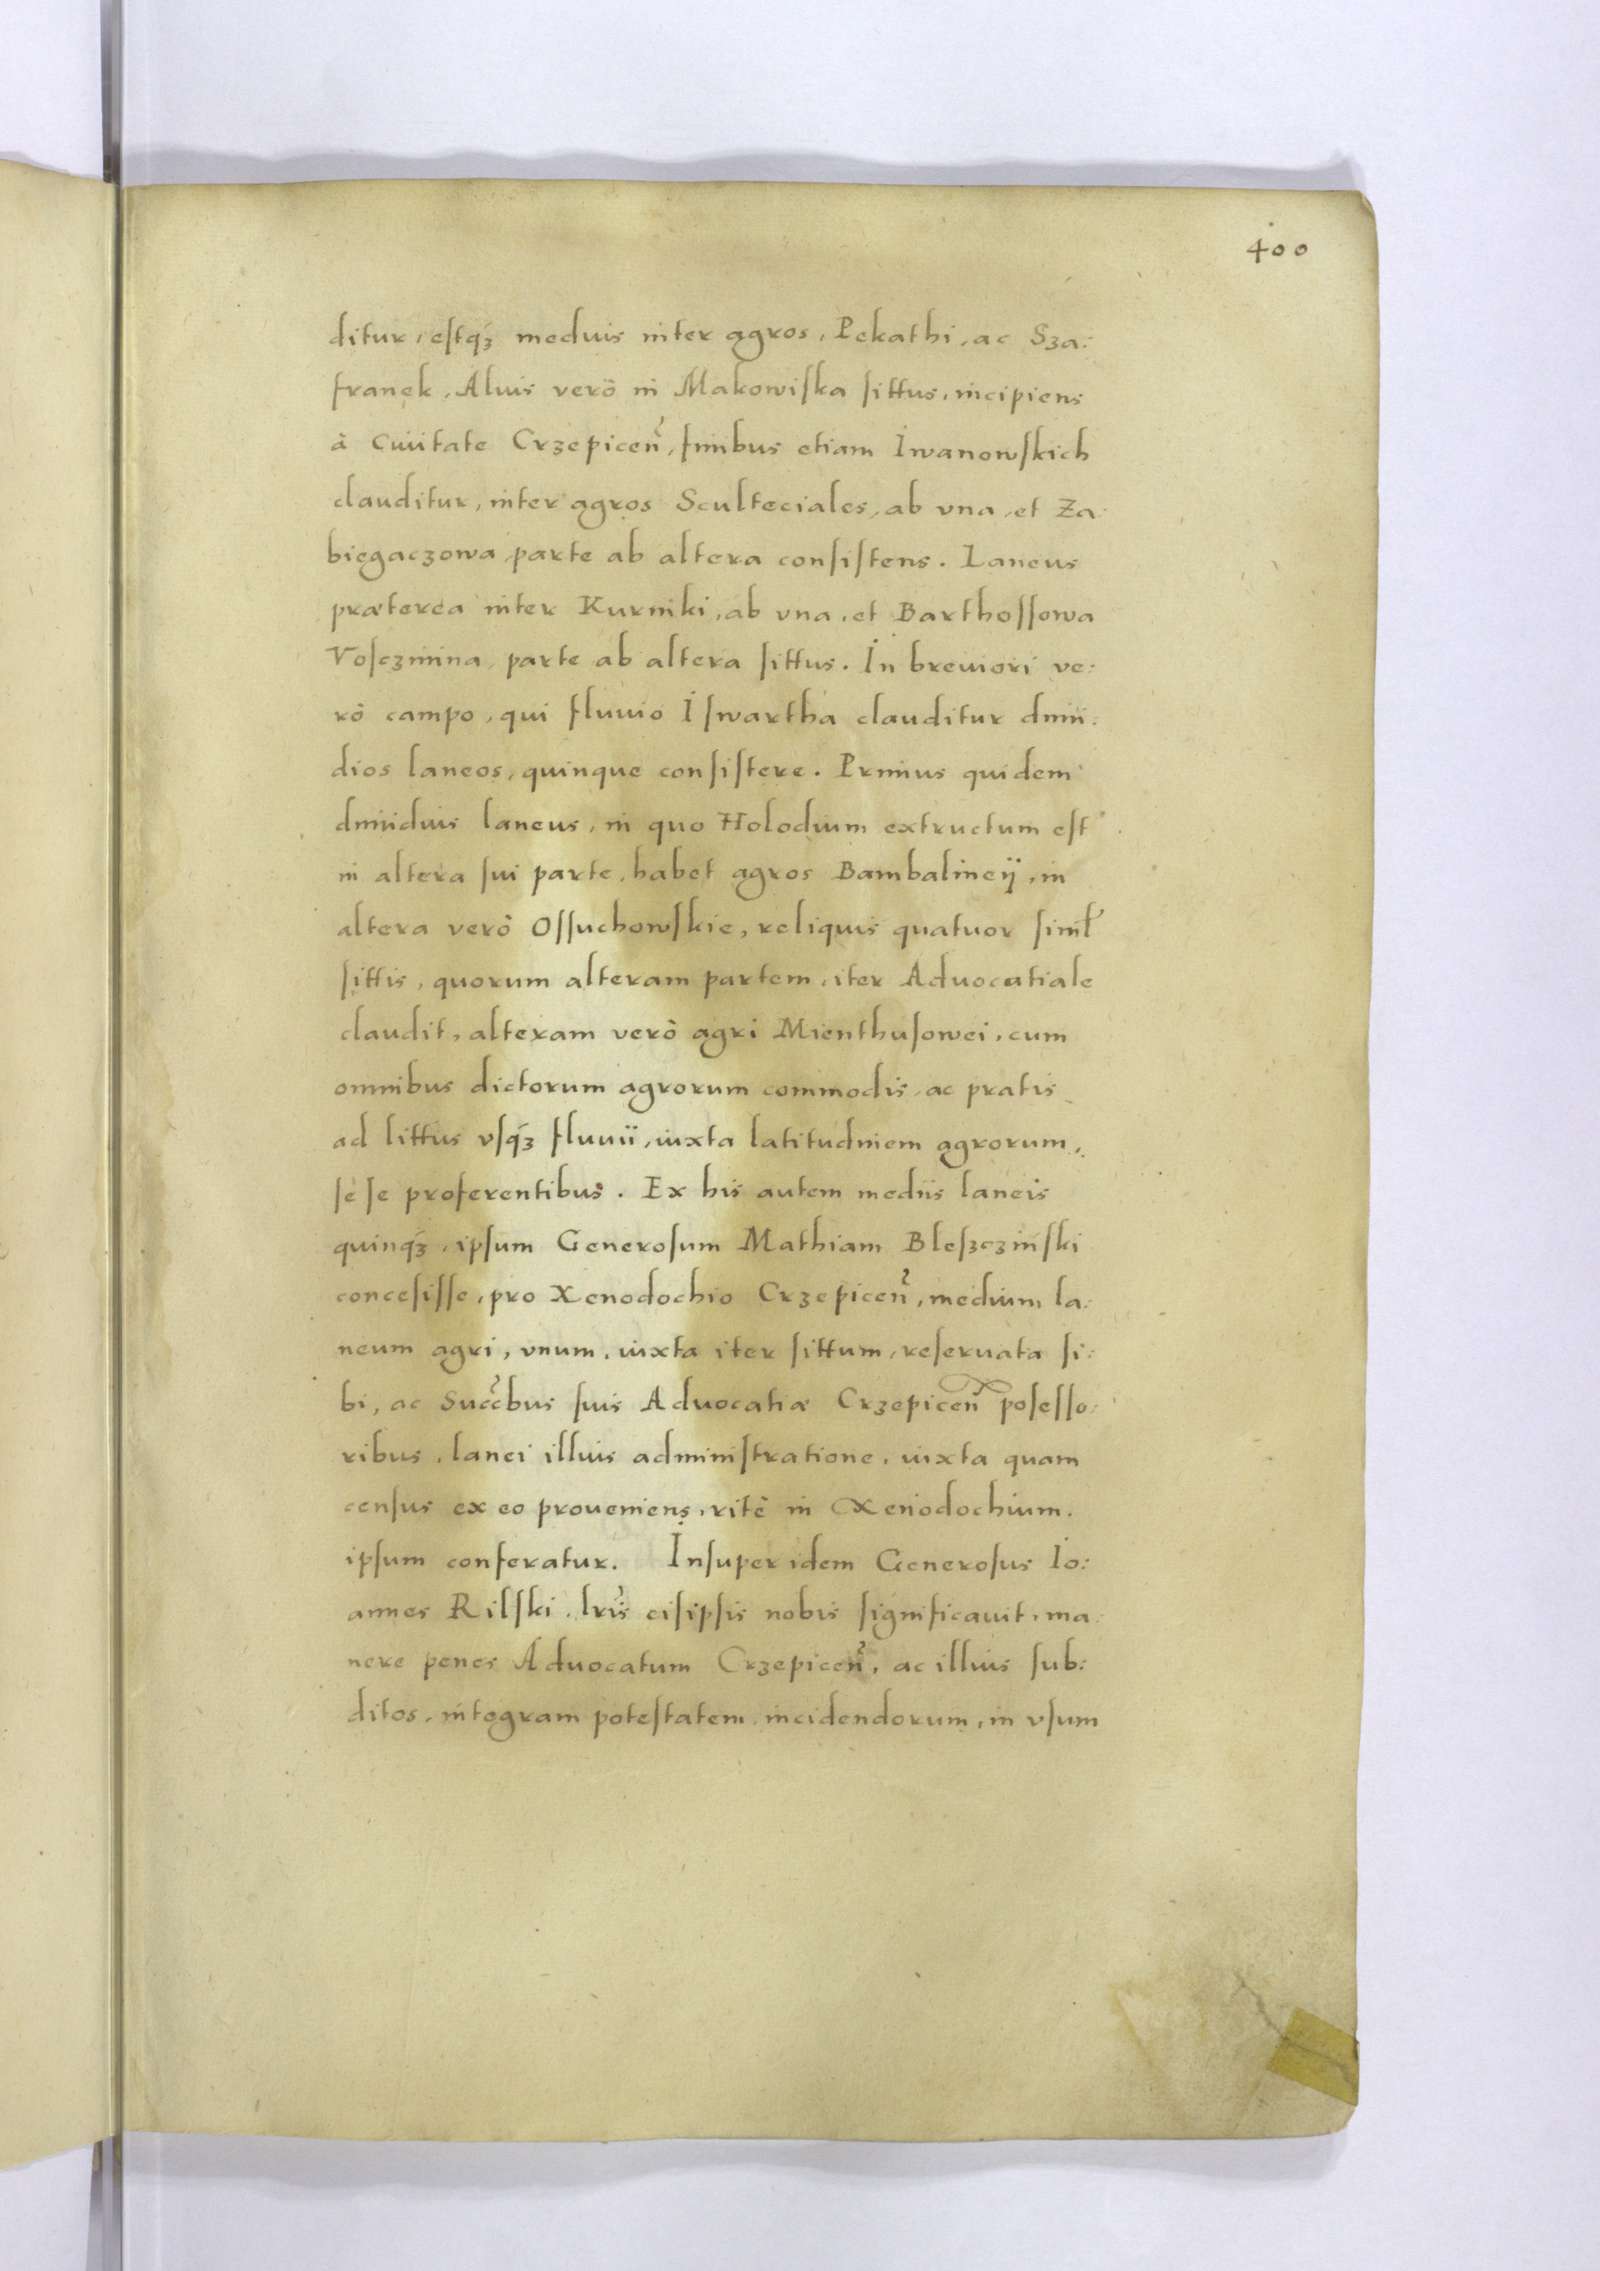 400
ditur, estqꝫ medius inter agros, Pekathi, ac Sza:
franek, Alius verò in Makowiska sittus, incipiens
à Ciuitate Crzepiceñ, finibus etiam Iwanowskich
clauditur, inter agros Sculteciales, ab vna, et Za:
biegaczowa, parte ab altera consistens. Laneus
præterea inter Kurniki, ab vna, et Barthossowa
Vosczinina, parte ab altera sittus. In breuiori ve:
rò campo, qui fluuio Iswartha clauditur dimi:
dios laneos, quinque consistere. Primus quidem
dimidius laneus, in quo Holodium extructum est
in altera sui parte, habet agros Bambalineÿ, in
altera verò Ossuchowskie, reliquis quatuor simil̃
sittis, quorum alteram partem, iter Aduocatiale
claudit, alteram verò agri Mienthusowei, cum
omnibus dictorum agrorum commodis, ac pratis
ad littus vsqꝫ fluuii, iuxta latitudinem agrorum,
sè se proferentibus. Ex his autem mediis laneis
quinqꝫ, ipsum Generosum Mathiam Bleszczinski
concesisse, pro Xenodochio Crzepiceñ, medium la:
neum agri, vnum, iuxta iter sittum, reseruata si:
bi, ac Succ̃bus suis Aduocatiæ Crzepiceñ posesso:
ribus, lanei illius administratione, iuxta quam
census ex eo proueniens, ritè in Xenodochium.
ipsum conferatur. Insuper idem Generosus Io:
annes Rilski, lrĩs eisipsis nobis significauit, ma:
nere penes Aduocatum Crzepiceñ, ac illius sub:
ditos, integram potestatem, incidendorum, in vsum